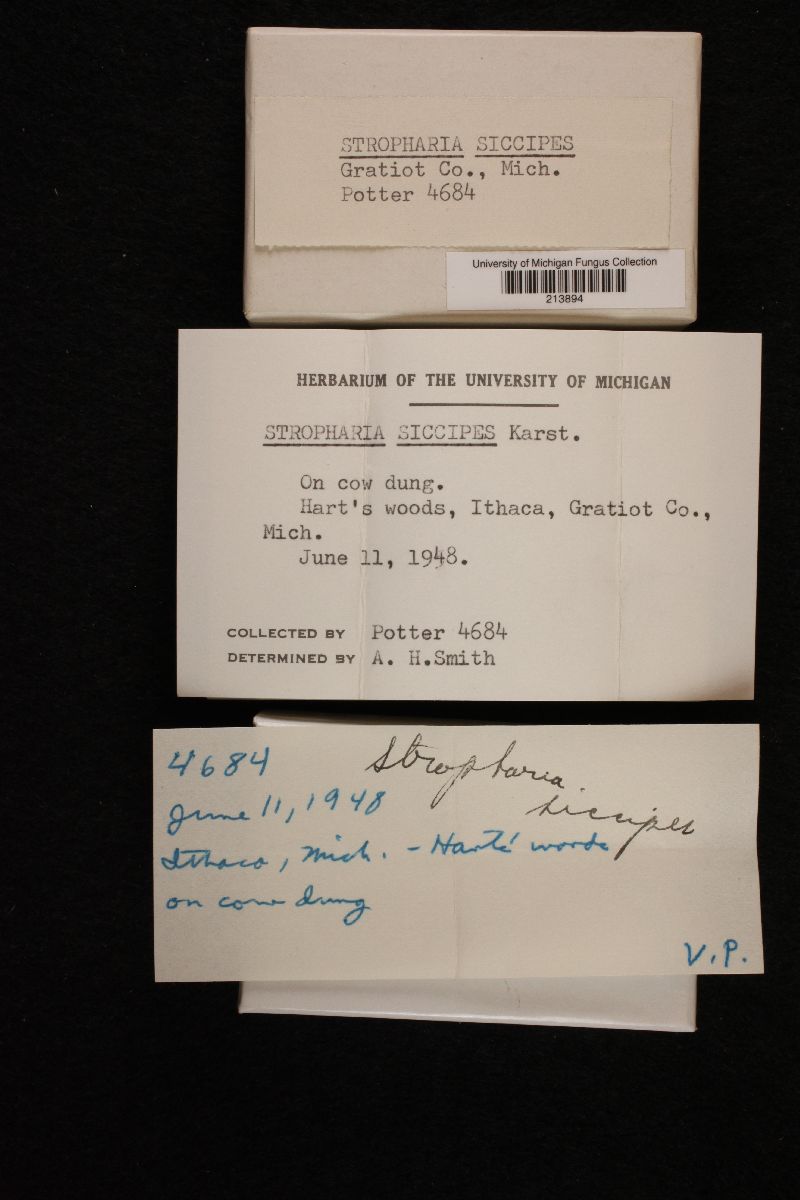 STROPHARIA SICCIPES
Gratiot Co., Mich.
Potter 4684
University of Michigan Fungus Collection
213894
HERBARIUM OF THE UNIVERSITY OF MICHIGAN
STROPHARIA SICCIPES Karst.
On cow dung.
Hart's woods, Ithaca, Gratiot Co.,
Mich.
June 11, 1948.
COLLECTED BY Potter 4684
DETERMINED BY A. H.Smith
4684 Stropharia
siccipes
June 11, 1948
Ithaca, Mich. - Harts' woods
on cow dung
V.P.